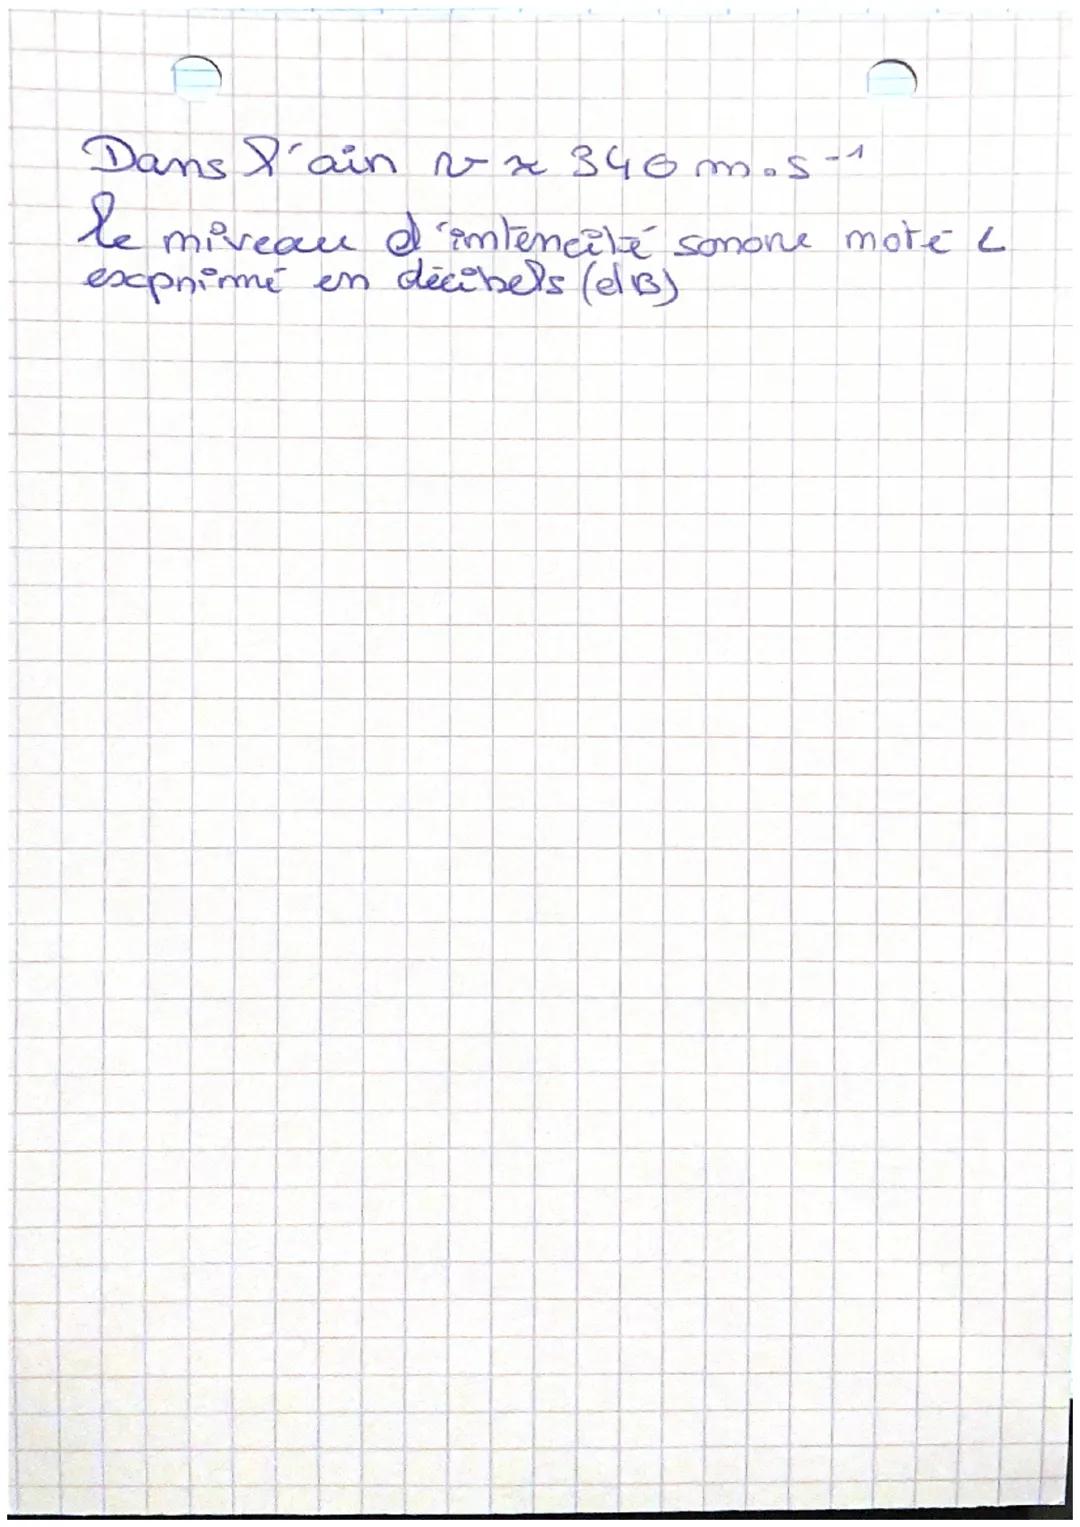 Dans l'air v ≈ 340 m.s⁻¹
le niveau d'intencité sonore noté L
exprimé en décibels (dB)